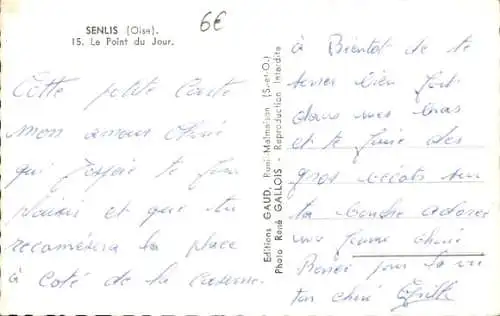 SENLIS (Oise).
15. Le Point du Jour.
6€
Cette petite Carte
mon amour chéri
qui j'espère te fera
plaisir et que tu
reconnaitra la place
à coté de la caserne.
Editions GAUD, Rueil-Malmaison (S.-et-O.)
Photo René GALLOIS - Reproduction Interdite
à Bientot de te
serrer bien fort
dans mes bras
et te faire des
gros bécots sur
ta bouche adorée
ma femme chérie
pour la vie
ton chéri